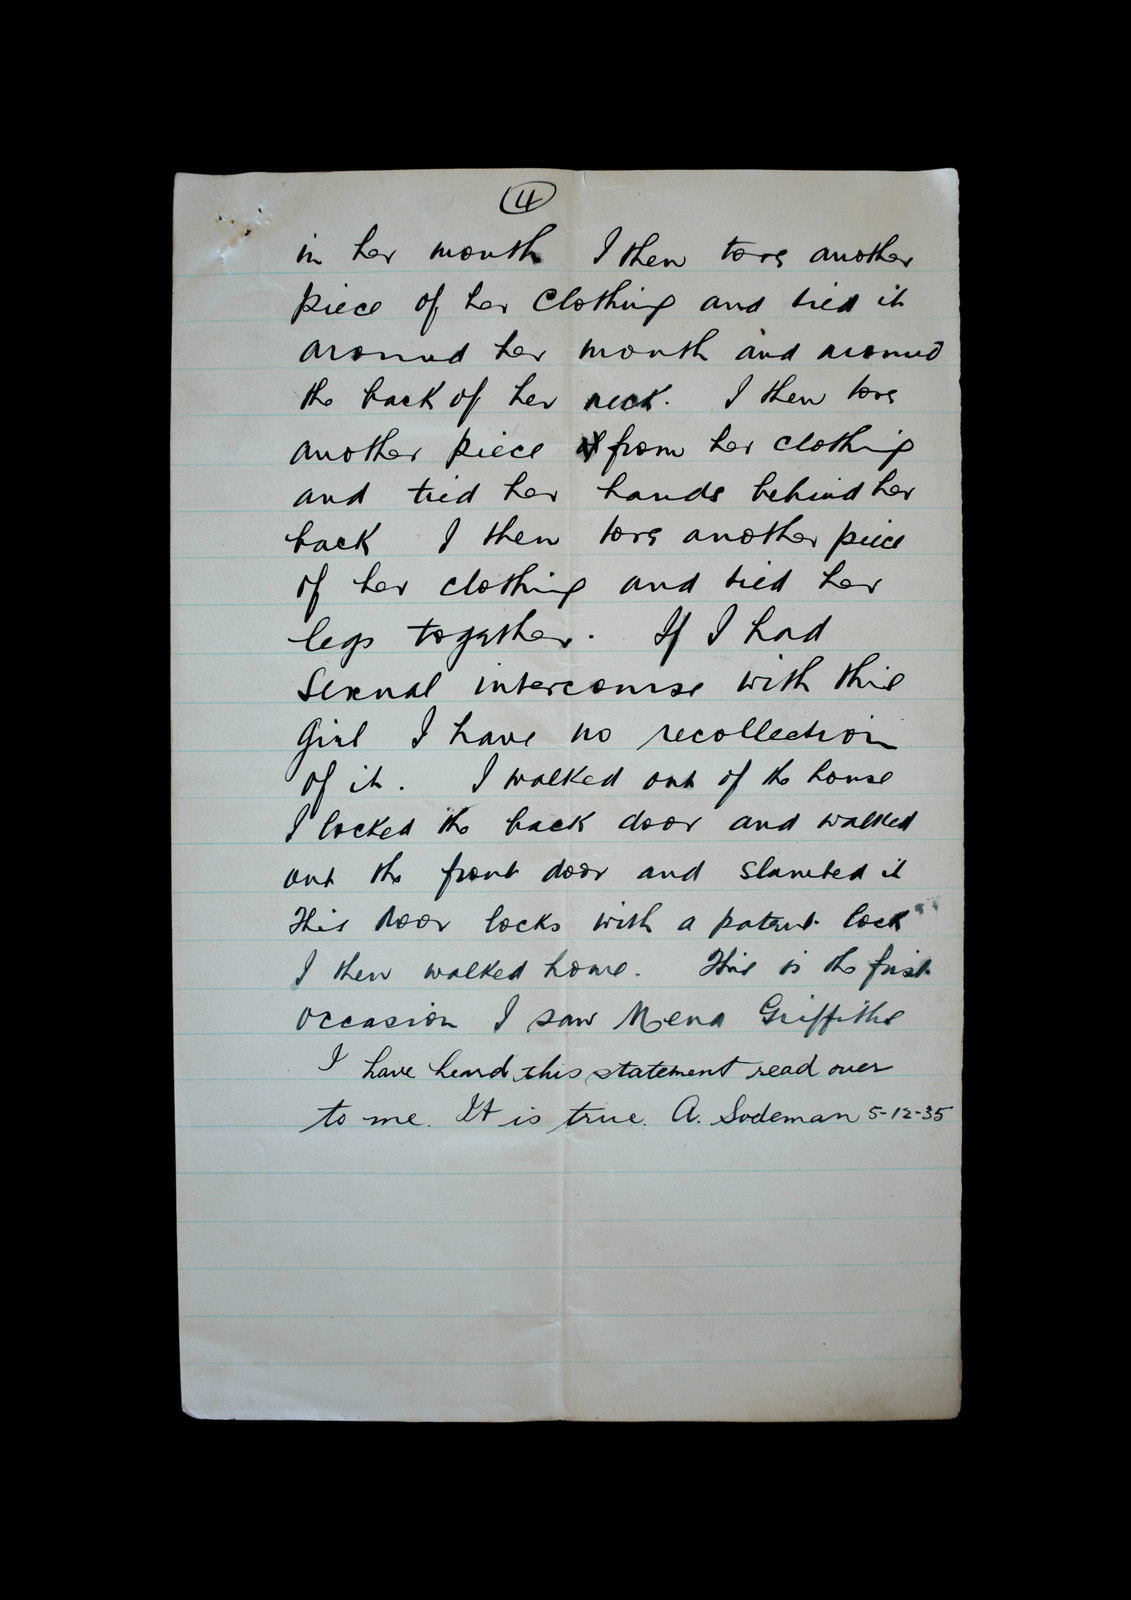 4
in her mouth I then tore another
piece of her clothing and tied it
around her mouth and around
the back of her neck. I then tore
another piece from her clothing
and tied her hands behind her
back I then tore another piece
of her clothing and tied her
legs together. If I had
sexual intercourse with this
girl I have no recollection
of it. I walked out of the house
I locked the back door and walked
out the front door and slambed it
This door locks with a patent lock
I then walked home. This is the first
occasion I saw Mena Griffiths
I have heard this statement read over
to me. It is true. A. Sodeman 5-12-35